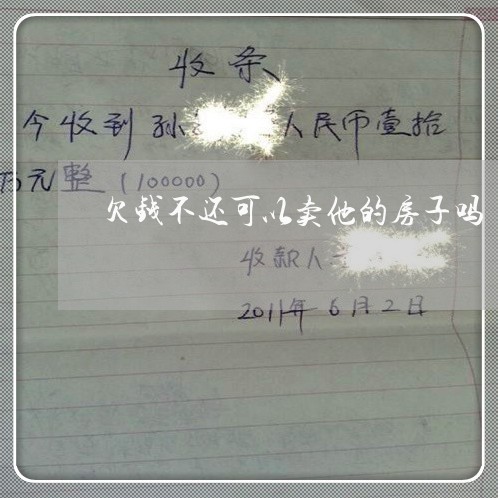 收条
今收到孙 人民币壹拾
万元整（100000）
欠钱不还可以卖他的房子吗
收款人
2011年6月2日